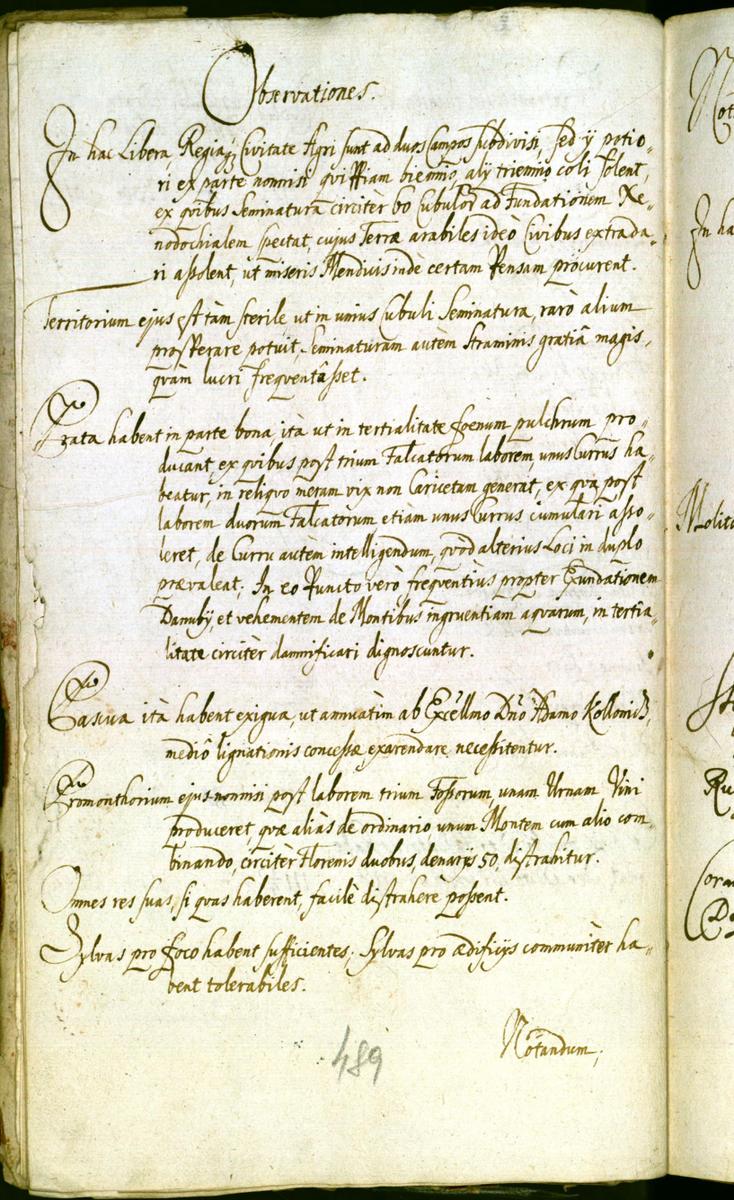 Observationes.
In hac Libera, Regiaq; Civitate Agri sunt ad duos Campos subdivisi, sed ij potio-
ri ex parte nonnisi quispiam biennio, alij triennio coli solent,
ex quibus Seminatura circiter 60 Cubulor̃ ad Fundationem Xe-
nodochialem spectat, cujus Terræ arabiles ideò Civibus extrada-
ri assolent, ut miseris Mendicis indè certam Pensam procurent.
Territorium ejus est tàm sterile, ut in unius Cubuli Seminatura, rarò alium
prosperare potuit, Seminaturam autèm Straminis gratiâ magis,
quàm lucri frequentâsset.
Prata habent in parte bona, ità ut in tertialitate foenum pulchrum pro-
ducant, ex quibus post trium Falcatorum laborem, unus Currus ha-
beatur, in reliquo meram vix non Caricetam generat, ex qua, post
laborem duorum Falcatorum, etiam unus Currus cumulari asso-
leret, de Curru autèm intelligendum, quòd alterius Loci in duplo
prævaleat; In eo Puncto verò frequentiùs propter Exundationem
Danubij, et vehementem de Montibus ingruentiam aquarum, in tertia-
litate circitèr damnificari dignoscuntur.
Pascua ità habent exigua, ut annuatìm ab Excellmo Dño Adamo Kollonis,
mediô lignationis concessæ, exarendare necessitentur.
Promonthorium ejus nonnisi post laborem trium Fossorum, unam Urnam Vini
produceret, quæ aliàs de ordinario unum Montem cum alio com-
binando, circitèr Florenis duobus, denarijs 50, distrahitur.
Omnes res suas, si quas haberent, facilè distrahere possent.
Sylvas pro foco habent sufficientes; Sylvas pro ædificijs communitèr ha-
bent tolerabiles.
Notandum;
489